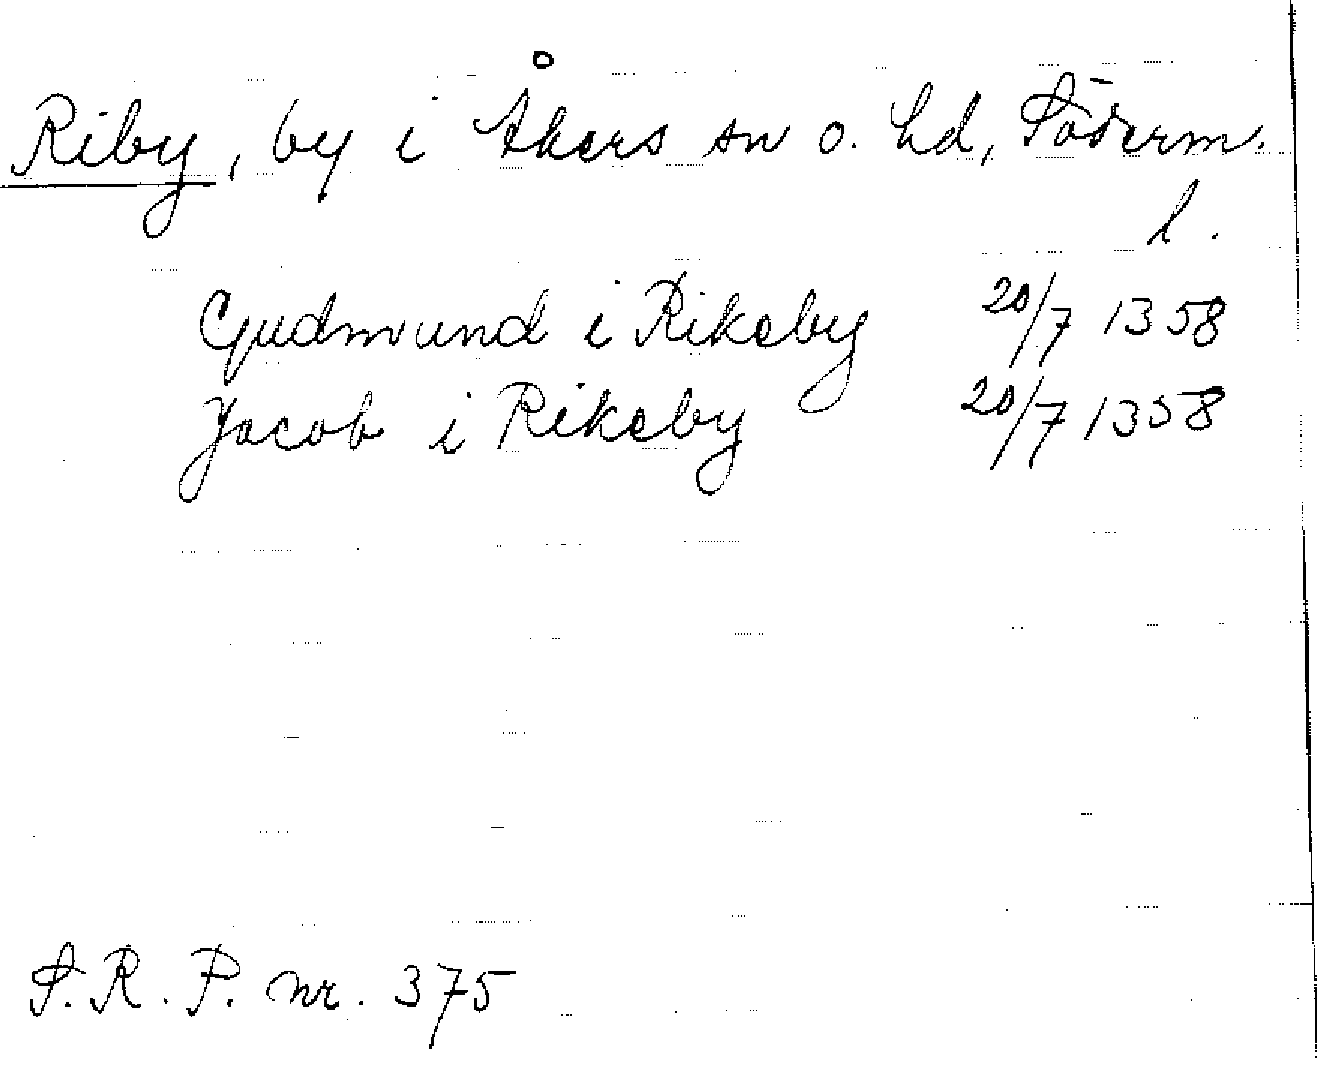 Riby, by i Åkers sn o. hd, Söderm.
l.
Gudmund i Rikeby 20/7 1358
Jacob i Rikeby 20/7 1358
S.R.P. nr. 375